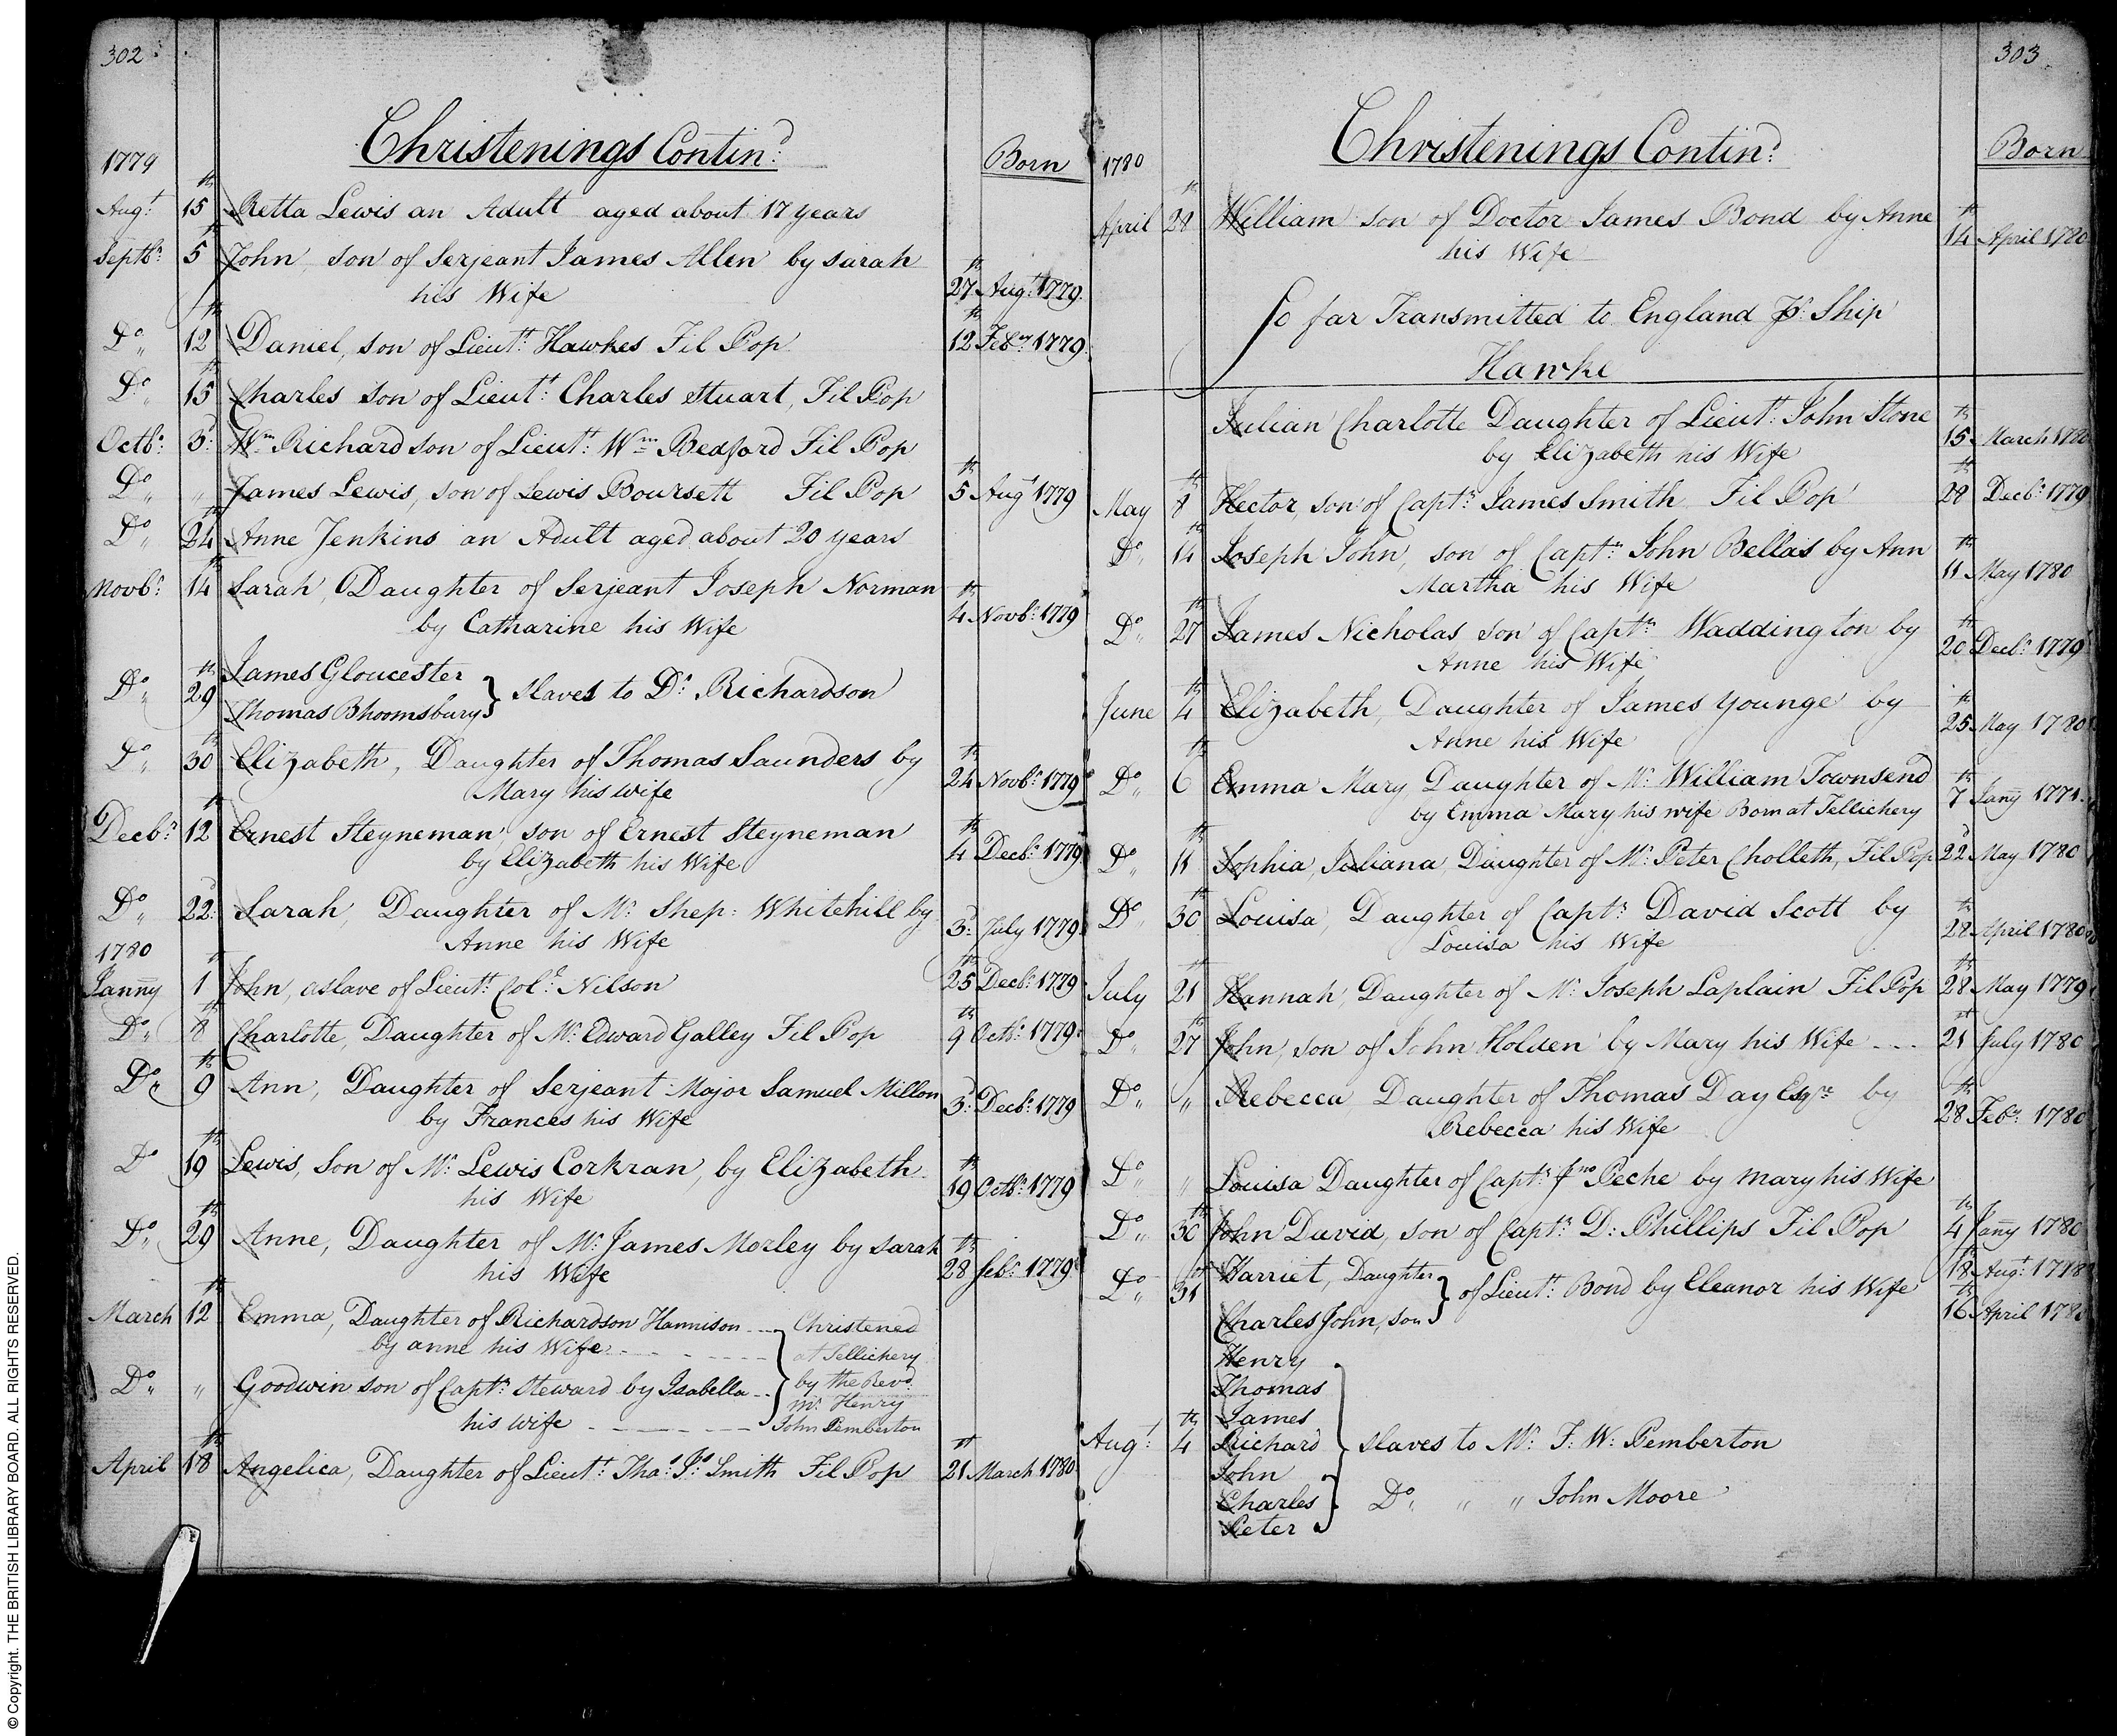 302
Christenings Contin.d
1779
Born
Aug.t 15th Retta Lewis an Adult aged about 17 years
Septb.r 5th John, son of Serjeant James Allen by Sarah
his Wife 27th Aug.t 1779
D.o 12th Daniel, son of Lieut.t Hawkes Fil Pop 12th Feb.ry 1779
D.o 15th Charles son of Lieut.t Charles Stuart, Fil Pop
Octb.r 3.d W.m Richard son of Lieut.t W.m Bedford Fil Pop
D.o " James Lewis, son of Lewis Boursett Fil Pop 5th Aug.t 1779
D.o 24th Anne Jenkins an Adult aged about 20 years
Novb.r 14th Sarah, Daughter of Serjeant Joseph Norman
by Catharine his Wife 4th Novb.r 1779
James Gloucester
D.o 29th } Slaves to D.r Richardson
Thomas Bhoomsbury
D.o 30th Elizabeth, Daughter of Thomas Saunders by
Mary his wife 24th Novb.r 1779
Decb.r 12th Ernest Steyneman, son of Ernest Steyneman
by Elizabeth his Wife 4th Decb.r 1779
D.o 22d Sarah, Daughter of M.r Shep: Whitehill by
Anne his Wife 3.d July 1779
1780
Janny 1st John, a slave of Lieut.t Col.l Nilson 25th Decb.r 1779
D.o 8th Charlotte, Daughter of M.r Edward Galley Fil Pop 9th Octb.r 1779
D.o 9th Ann, Daughter of Serjeant Major Samuel Millon
by Frances his Wife 3.d Decb.r 1779
D.o 19th Lewis, Son of M.r Lewis Corkran, by Elizabeth
his Wife 19th Octb.r 1779
D.o 29th Anne, Daughter of M.r James Morley by Sarah
his Wife 28th Feb.r 1779
March 12th Emma, Daughter of Richardson Hannison Christened
by anne his Wife at Tellichery
D.o " Goodwin son of Capt.n Steward by Isabella by the Rev.d
M.r Henry
his wife John Pemberton
April 18th Angelica, Daughter of Lieut.t Tho.s J.s Smith Fil Pop 21st March 1780
303
Christenings Contin.d
1780
Born
April 28th William son of Doctor James Bond by Anne
his Wife 14th April 1780
So far Transmitted to England P.r Ship
Hawke
Julian Charlotte Daughter of Lieut.t John Stone
by Elizabeth his Wife 15th March 1780
May 8th Hector, son of Capt.n James Smith Fil Pop 28th Decb.r 1779
D.o 14th Joseph John, son of Capt.n John Bellas by Ann
Martha his Wife 11th May 1780
D.o 27th James Nicholas son of Capt.n Waddington by
Anne his Wife 20th Decb.r 1779
June 4th Elizabeth, Daughter of James Younge by
Anne his Wife 25th May 1780
D.o 6th Emma Mary, Daughter of M.r William Townsend
by Emma Mary his wife Born at Tellichery 7th Janny 1771
D.o 11th Sophia, Juliana, Daughter of M.r Peter Cholleth, Fil Pop 22d May 1780
D.o 30th Louisa, Daughter of Capt.n David Scott by
Louisa his Wife 28th April 1780
July 21st Hannah, Daughter of M.r Joseph Laplain Fil Pop 28th May 1779
D.o 27th John, son of John Holden by Mary his Wife 21st July 1780
D.o " Rebecca Daughter of Thomas Day Esq.re by
Rebecca his Wife 28th Feb.y 1780
D.o " Louisa Daughter of Capt.n J.no Peche by Mary his Wife
D.o 30th John David, son of Capt.n D: Phillips Fil Pop 4th Janny 1780
Harriet, Daughter 18th Aug.t
D.o 31st } of Lieut.t Bond by Eleanor his Wife
Charles John, son 16th April
Henry
Thomas
James
Aug.t 4th Richard } Slaves to M.r F: W: Pemberton
John
Charles } D.o " " John Moore
Peter
© Copyright. THE BRITISH LIBRARY BOARD. ALL RIGHTS RESERVED.